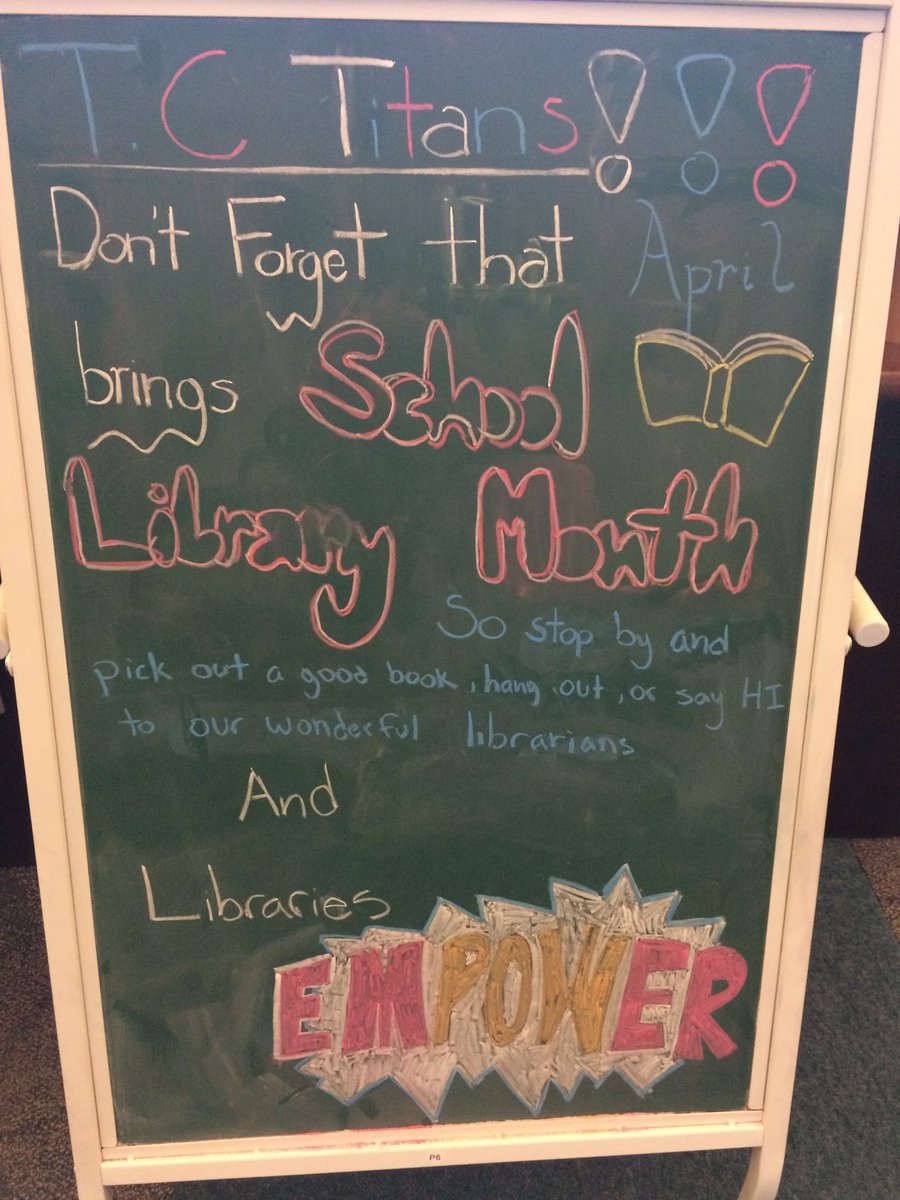 T.C Titans!!!
Don't Forget that April
brings School
Library Month
So stop by and
pick out a good book, hang out, or say HI
to our wonderful librarians
And
Libraries
EMPOWER
P6